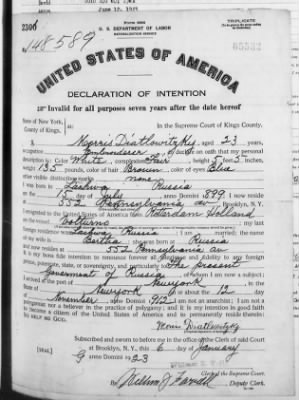 June 12, 1921
2300
Form 2203
TRIPLICATE
U. S. DEPARTMENT OF LABOR
NATURALIZATION SERVICE
No. 148589
UNITED STATES OF AMERICA
DECLARATION OF INTENTION
Invalid for all purposes seven years after the date hereof
State of New York,
County of Kings.
In the Supreme Court of Kings County.
I, Morris Diatlowitzky, aged 23 years,
occupation Embroiderer, do declare on oath that my personal
description is: Color White, complexion Fair, height 5 feet inches,
weight 135 pounds, color of hair Brown, color of eyes Blue
other visible distinctive marks none
I was born in Russia
on the 15 day of July, anno Domini 1899; I now reside
at 552 Pennsylvania av Brooklyn, N. Y.
I emigrated to the United States of America from Rotterdam Holland
on the vessel ; my last
foreign residence was Russia; I am married; the name
of my wife is Bertha; she was born at Russia
and now resides at 552 Pennsylvania av
It is my bona fide intention to renounce forever all allegiance and fidelity to any foreign
prince, potentate, state, or sovereignty, and particularly to The present
Government of Russia, of whom I am now a subject;
I arrived at the port of New York, in the
State of New York, on or about the 12 day
of November, anno Domini 1912; I am not an anarchist; I am not a
polygamist nor a believer in the practice of polygamy; and it is my intention in good faith
to become a citizen of the United States of America and to permanently reside therein:
SO HELP ME GOD.
Morris Diatlowitzky
Subscribed and sworn to before me in the office of the Clerk of said Court
[SEAL]
at Brooklyn, N. Y., this 6 day of January
anno Domini 1923
Clerk of the Supreme Court.
By William J. Farrell, Deputy Clerk.